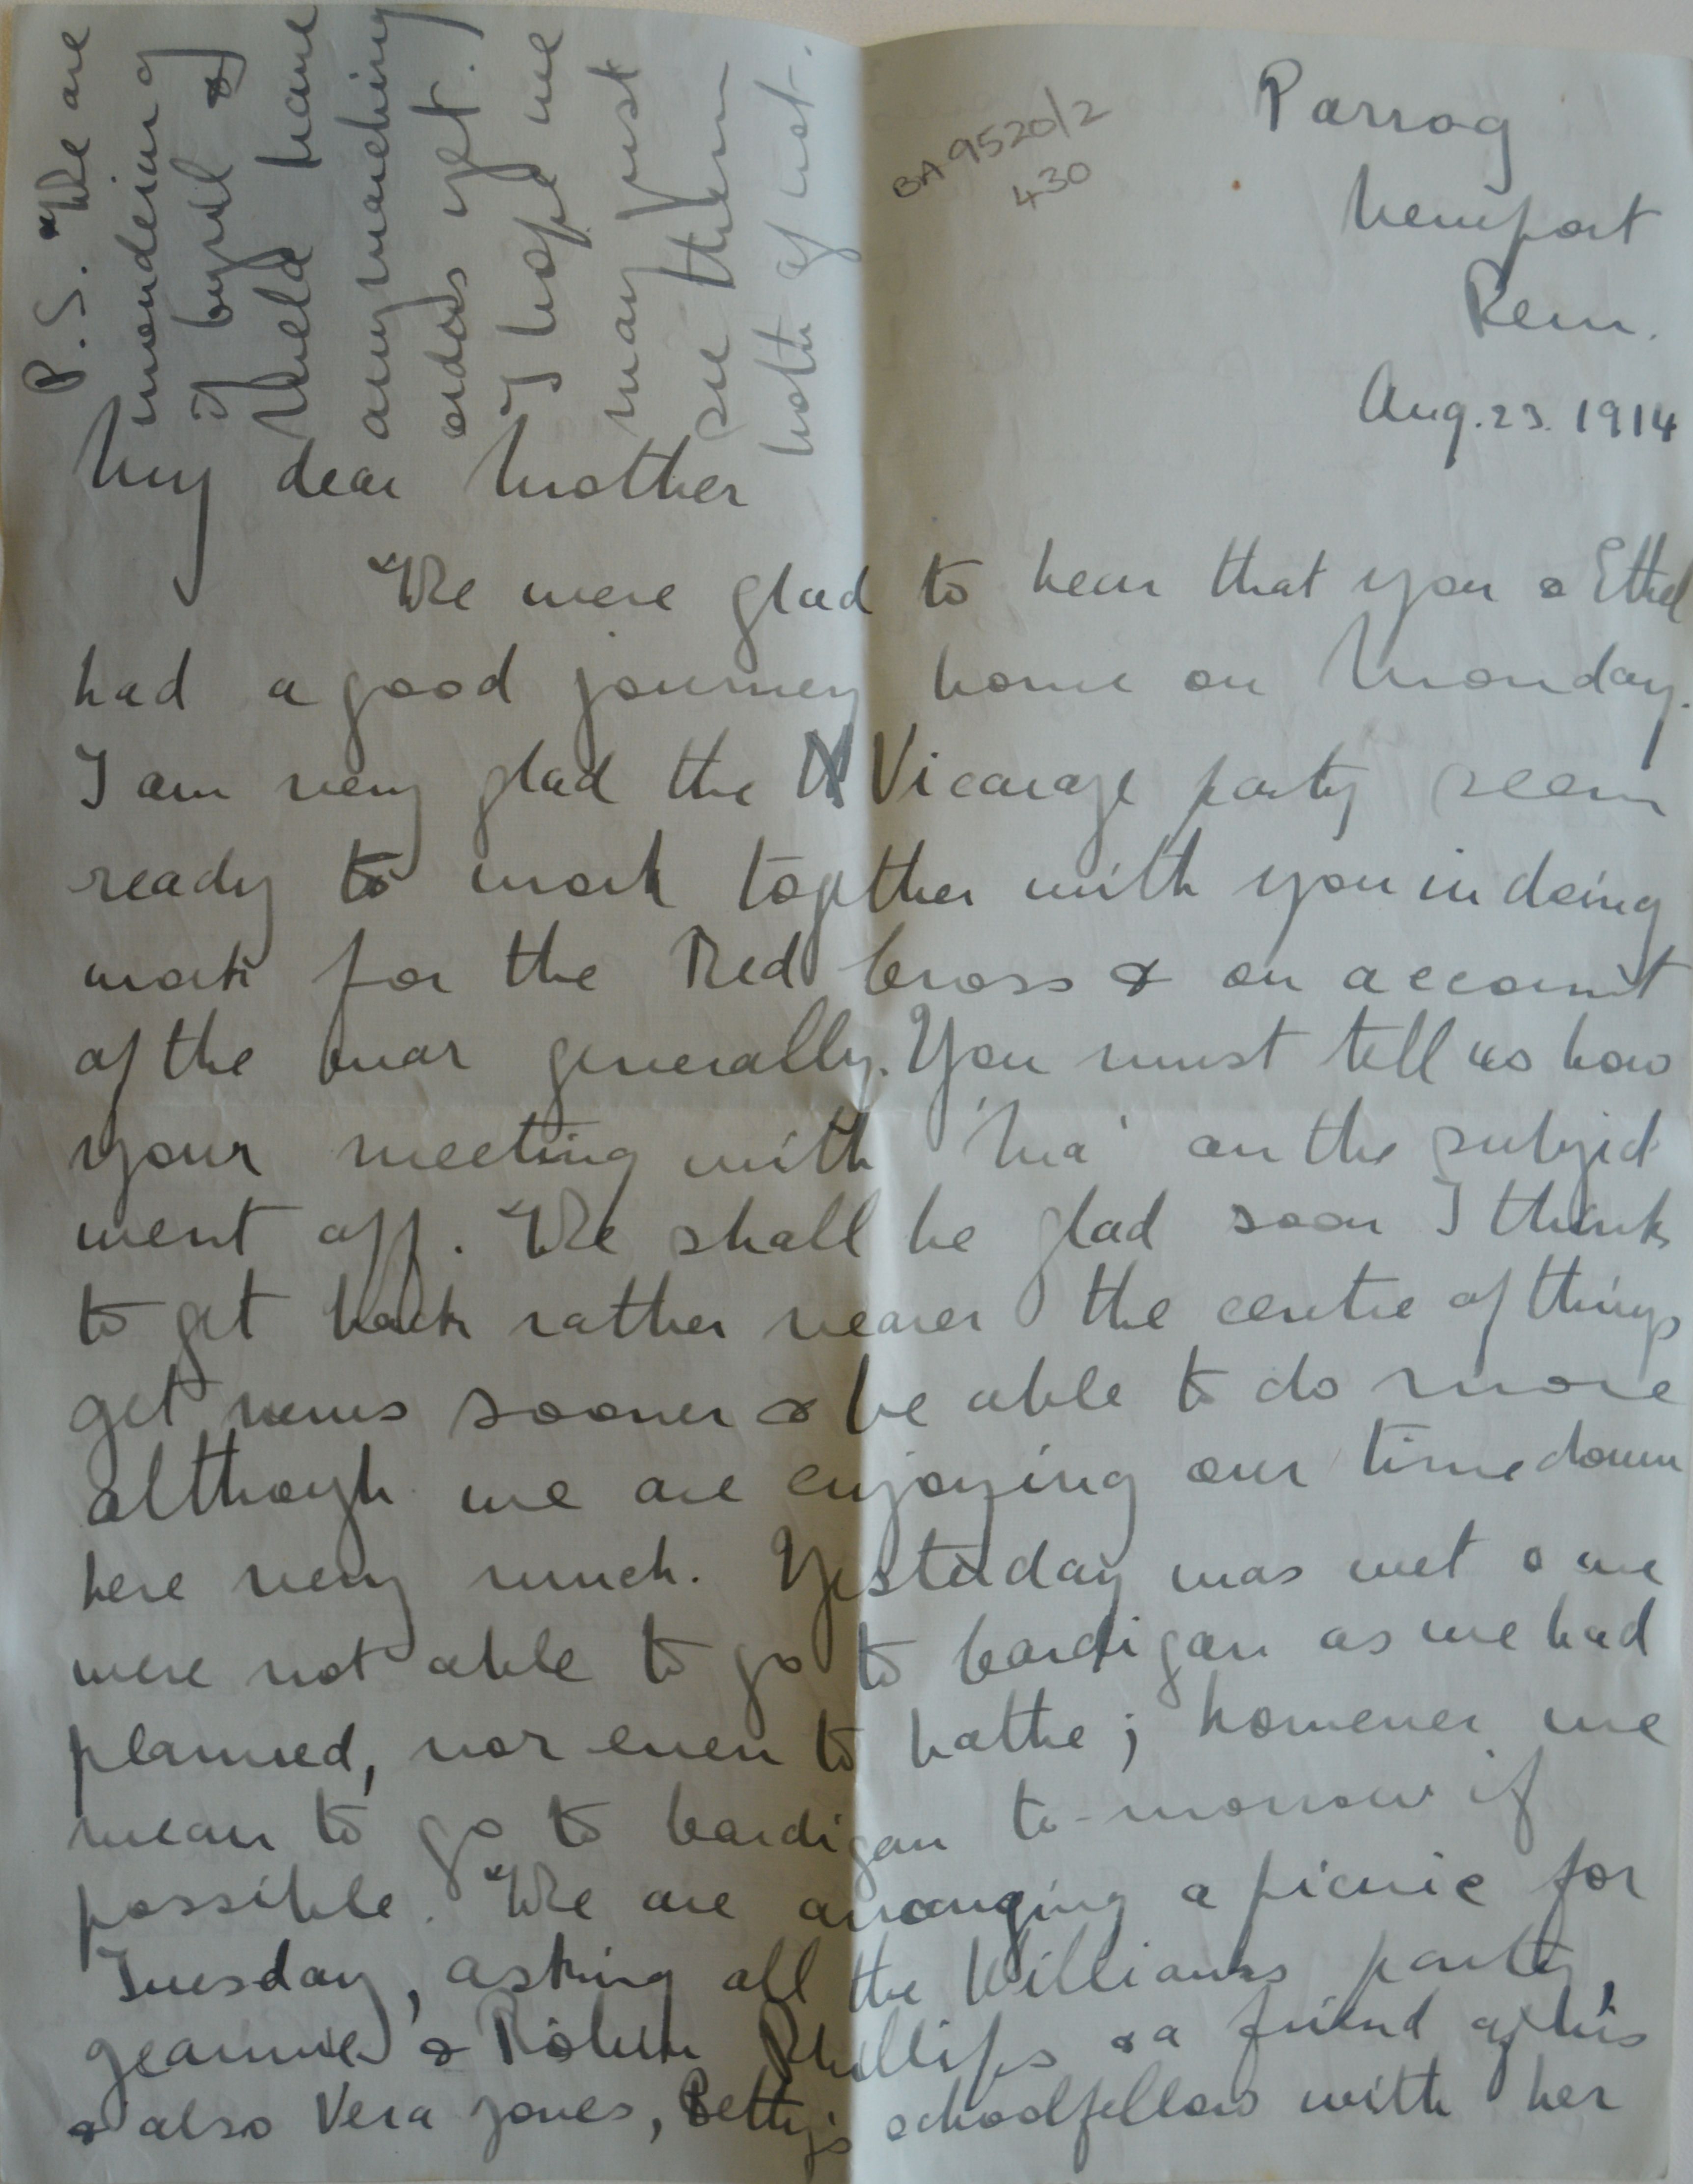 Parrog
Newport
Pem.
Aug. 23. 1914
BA 9520/2
430
P.S. We are
wondering
if Cyril &
Neild have
any marching
orders yet.
I hope we
may just
see them
both of us.
My dear Mother
We were glad to hear that you & Ethel
had a good journey home on Monday.
I am very glad the N Vicarage party seem
ready to work together with you in doing
work for the Red Cross & on account
of the war generally. You must tell us how
your meeting with 'Ma' on the subject
went off. We shall be glad soon I think
to get back rather nearer the centre of things
get news sooner & be able to do more
although we are enjoying our time down
here very much. Yesterday was wet & we
were not able to go to Cardigan as we had
planned, nor even to bathe; however we
mean to go to Cardigan to-morrow if
possible. We are arranging a picnic for
Tuesday, asking all the Williams party,
Jeannie & Robin Phillips & a friend of his
& also Vera Jones, Betty's schoolfellow with her